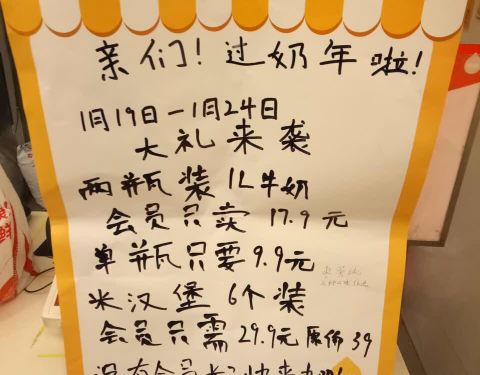 亲们！过奶年啦！
1月19日—1月24日
大礼来袭
两瓶装1L牛奶
会员只卖17.9元
单瓶只要9.9元
米汉堡6个装
会员只需29.9元原价39